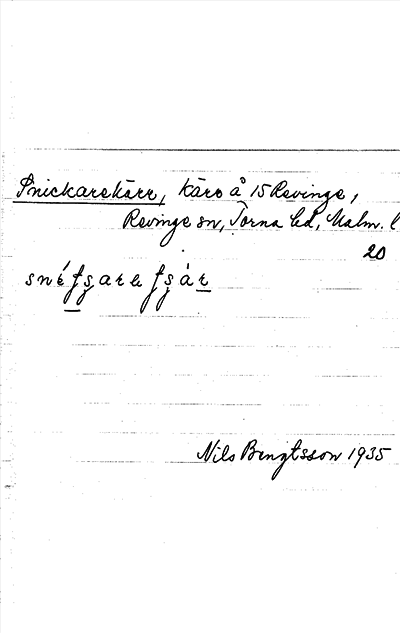 Snickarekärr, kärr å 15 Revinge,
Revinge sn, Torna hd, Malm. l
20
Nils Bengtsson 1935